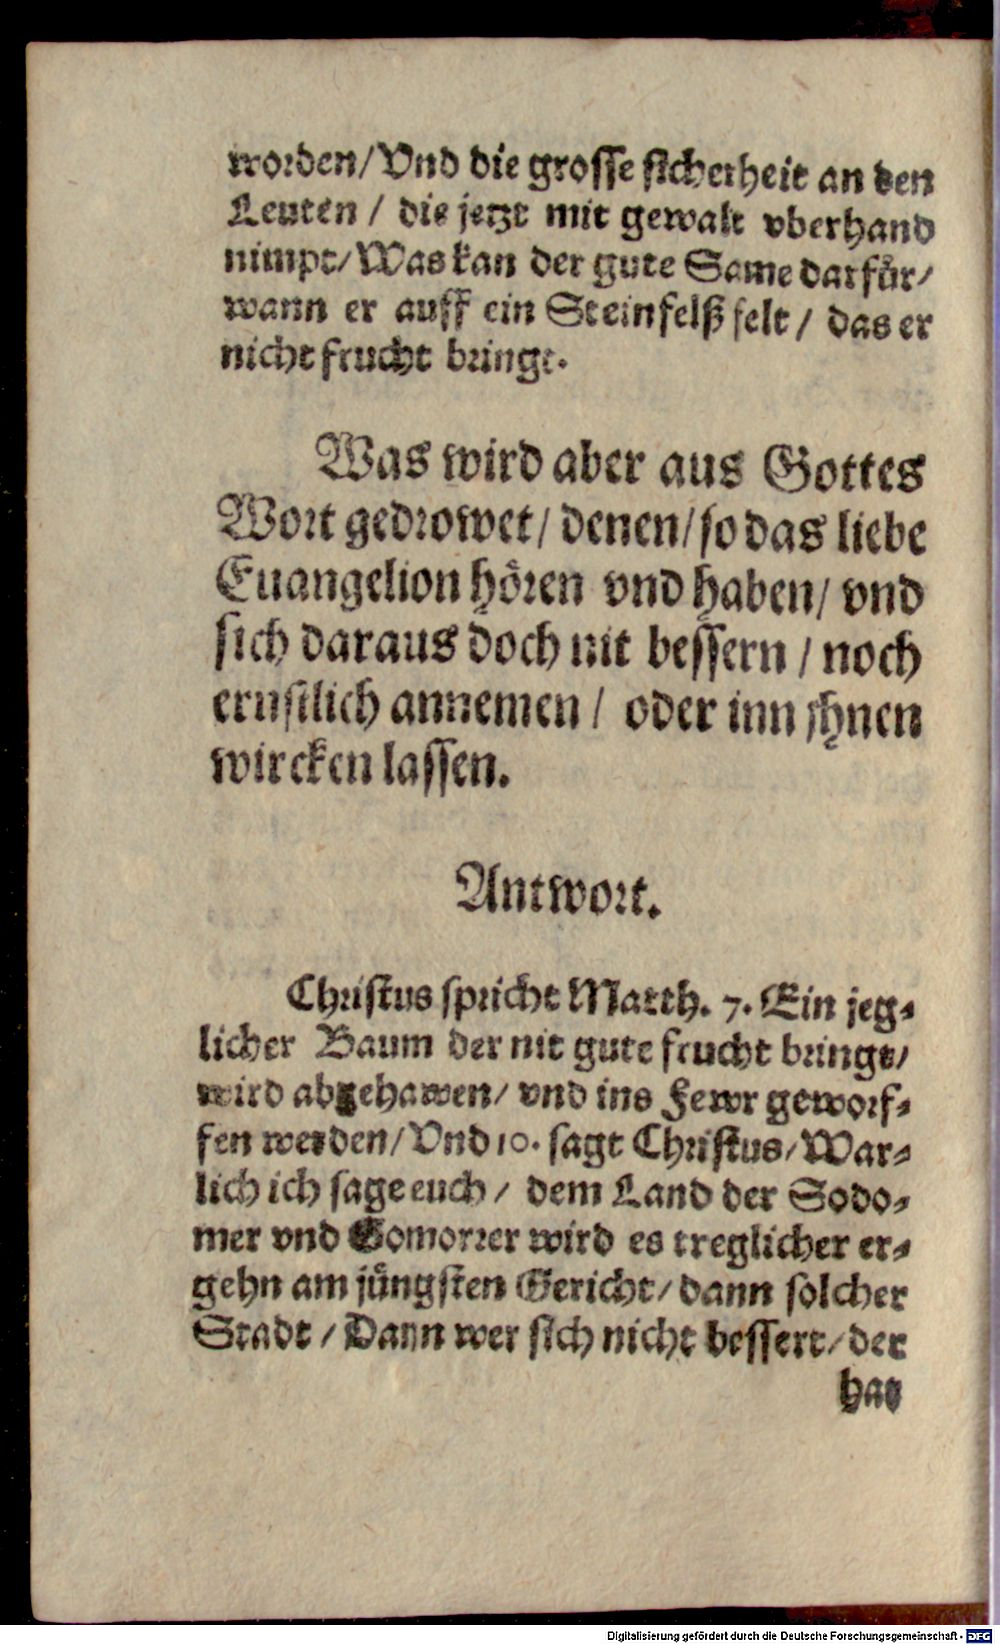 worden/ Vnd die grosse sicherheit an den
Leuten / die jetzt mit gewalt vberhand
nimpt/ Was kan der gute Same darfür/
wann er auff ein Steinfelß felt / das er
nicht frucht bringt.
Was wird aber aus Gottes
Wort gedrowet/ denen/ so das liebe
Euangelion hören vnd haben/ vnd
sich daraus doch nit bessern / noch
ernstlich annemen / oder inn jhnen
wircken lassen.
Antwort.
Christus spricht Matth. 7. Ein jeg-
licher Baum der nit gute frucht bringt/
wird abgehawen/ vnd ins Fewr geworf-
fen werden/ Vnd 10. sagt Christus/ War-
lich ich sage euch / dem Land der Sodo-
mer vnd Gomorrer wird es treglicher er-
gehn am jüngsten Gericht/ dann solcher
Stadt / Dann wer sich nicht bessert/ der
hat
Digitalisierung gefördert durch die Deutsche Forschungsgemeinschaft - DFG